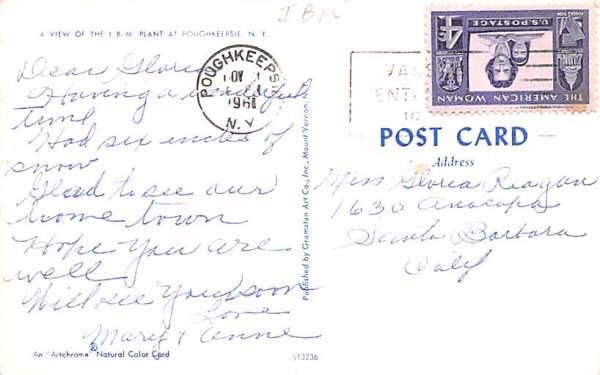 I B M
A VIEW OF THE I.B.M. PLANT AT POUGHKEEPSIE, N. Y.
Dear Gloria
Having a wonderful
time
Had six inches of
snow
Glad to see our
home town
Hope you are
well
Will see you soon
Love
Mary & Anne
An "Artchrome" Natural Color Card
S13236
Published by Gramatan Art Co., Inc., Mount Vernon,
POUGHKEEPSIE
1961
N. Y.
U.S. POSTAGE
4¢
THE AMERICAN WOMAN
POST CARD
Address
Miss Gloria Reagan
1630 Anacapa
Santa Barbara
Calif